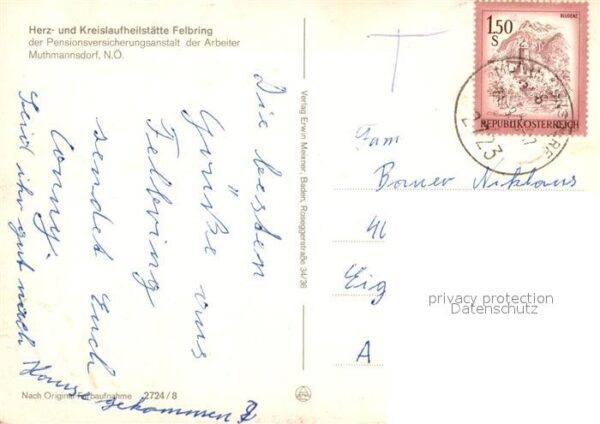 Herz- und Kreislaufheilstätte Felbring
der Pensionsversicherungsanstalt der Arbeiter
Muthmannsdorf, N.Ö.
Die besten
Grüße aus
Felbring
sendet Euch
Conny.
Seid ihr gut nach
Hause gekommen?
Nach Original Farbaufnahme 2724/8
Verlag Erwin Meixner, Baden, Roseggerstraße 34/36
T
1.50
S
BLUDENZ
REPUBLIK ÖSTERREICH
2723
Fam
Borner Niklaus
41
Eig
A
privacy protection
Datenschutz